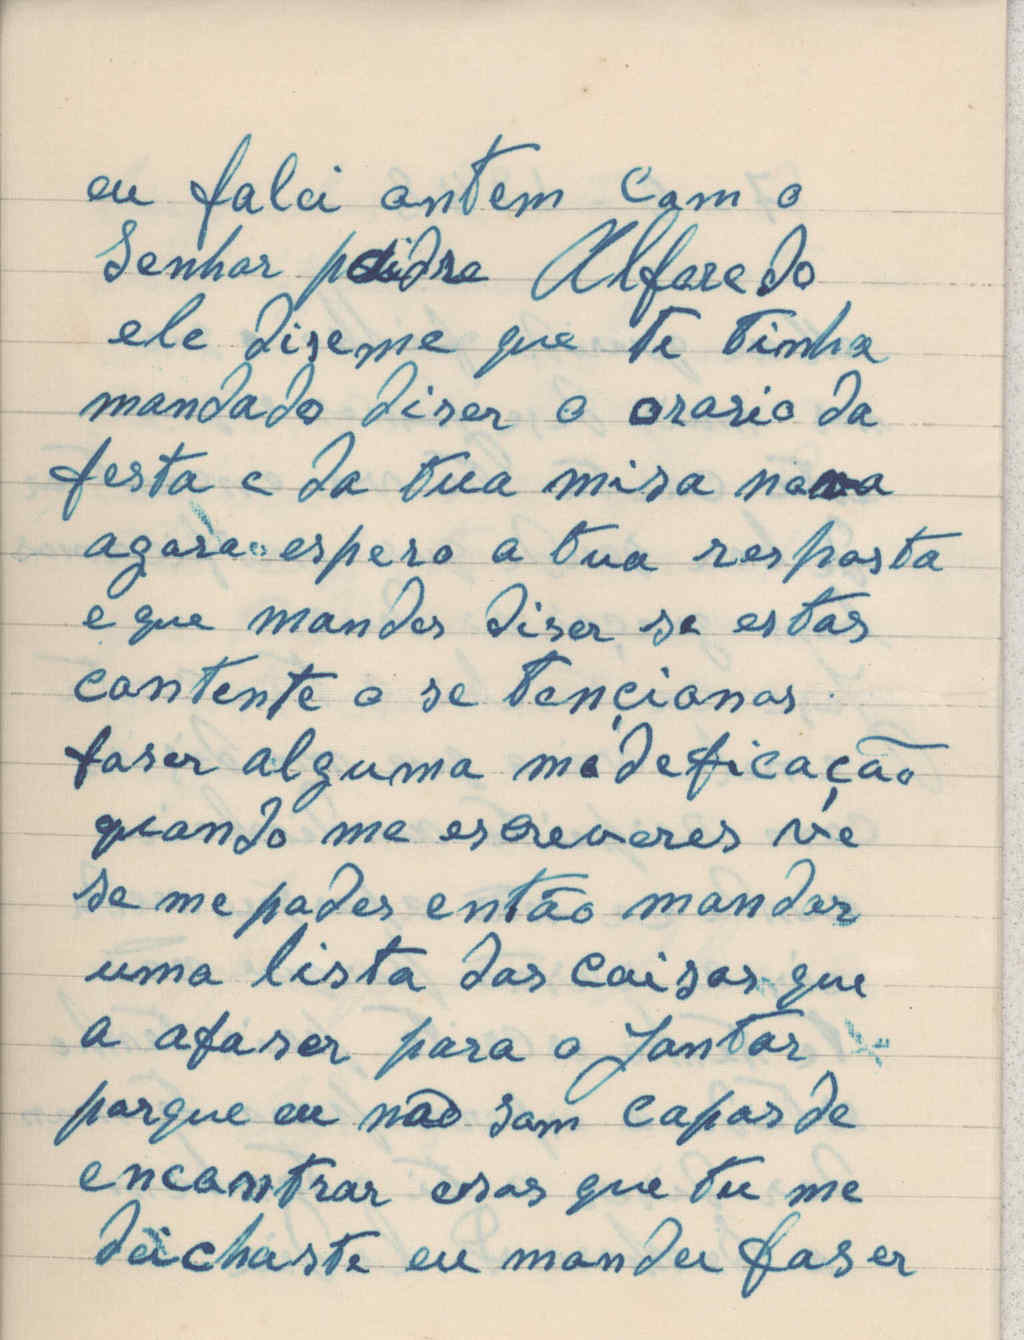 eu falei ontem com o
Senhor padre Alfaredo
ele diseme que te tinha
mandado diser o orario da
festa e da tua misa nova
agora espero a tua resposta
e que mandes diser se estás
contente o se tencionas
faser alguma modeficação
quando me escreveres vê
se me podes então mandar
uma lista das coisas que
a afaser para o Jantar
porque eu não som capas de
encontrar esas que tu me
deichaste eu mandei faser